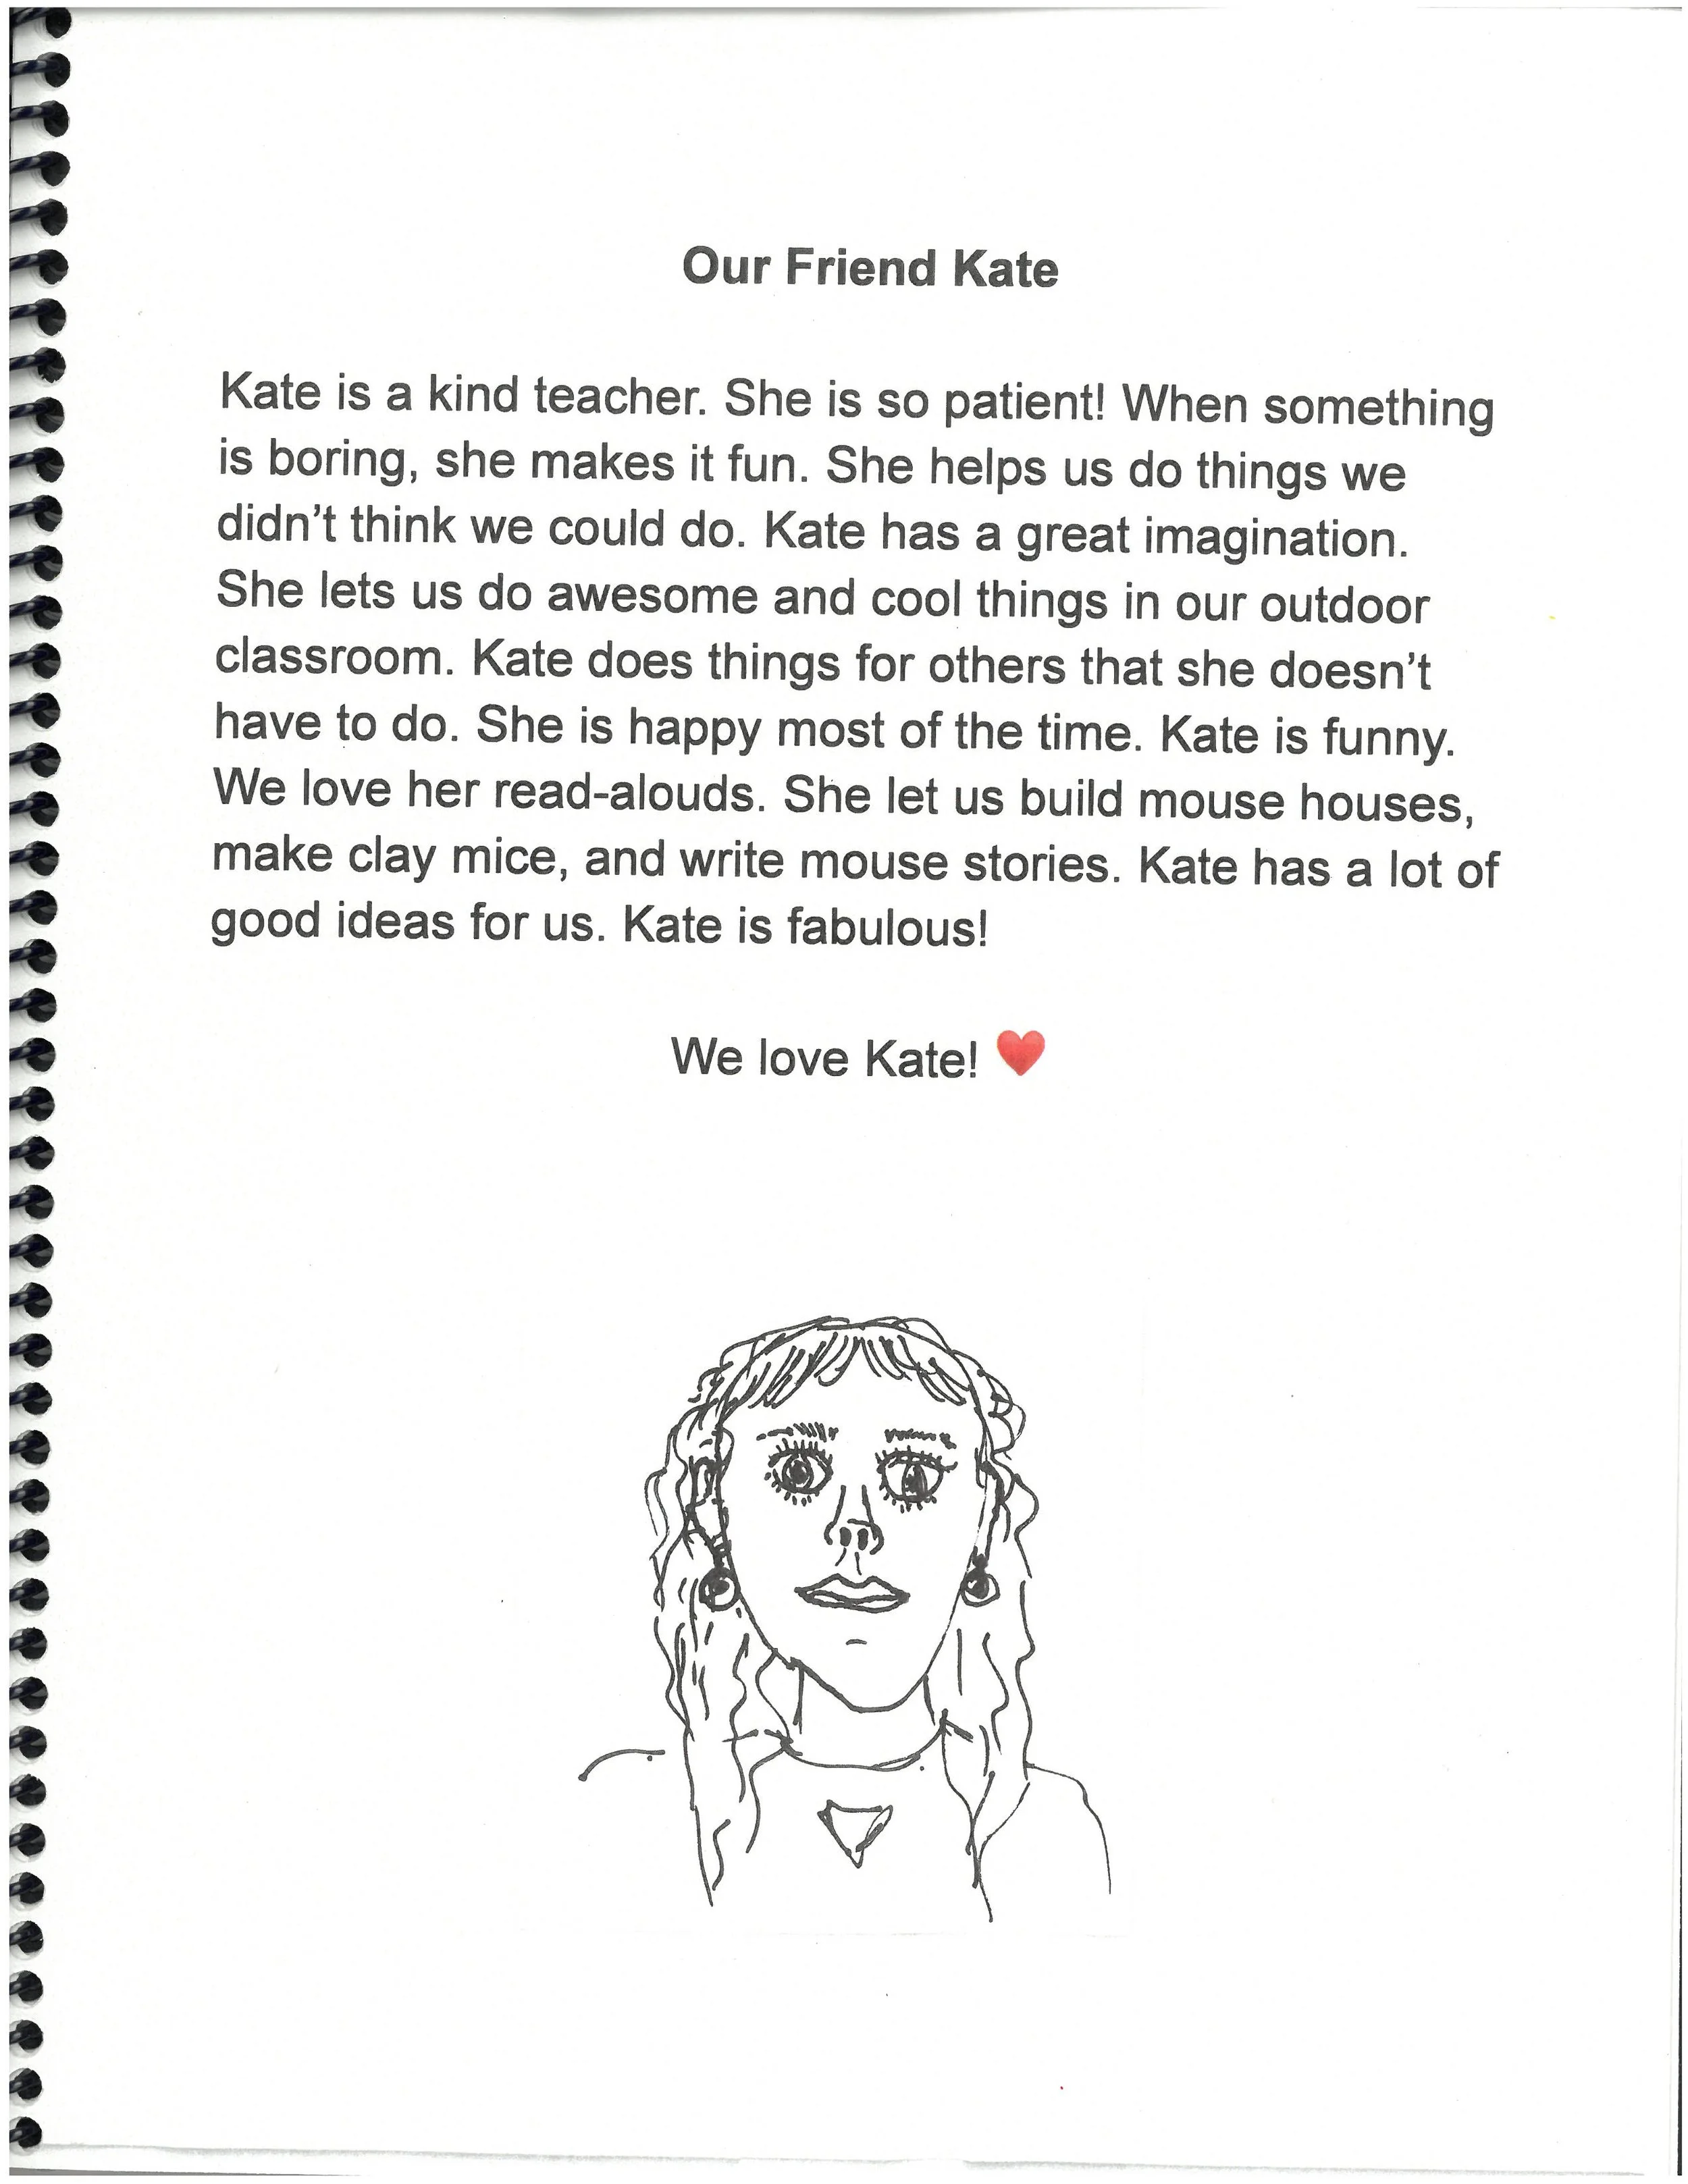 Our Friend Kate
Kate is a kind teacher. She is so patient! When something
is boring, she makes it fun. She helps us do things we
didn’t think we could do. Kate has a great imagination.
She lets us do awesome and cool things in our outdoor
classroom. Kate does things for others that she doesn’t
have to do. She is happy most of the time. Kate is funny.
We love her read-alouds. She let us build mouse houses,
make clay mice, and write mouse stories. Kate has a lot of
good ideas for us. Kate is fabulous!
We love Kate! ❤️